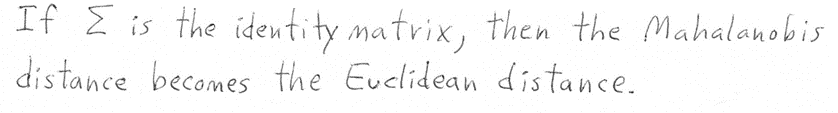 If Σ is the identity matrix, then the Mahalanobis
distance becomes the Euclidean distance.